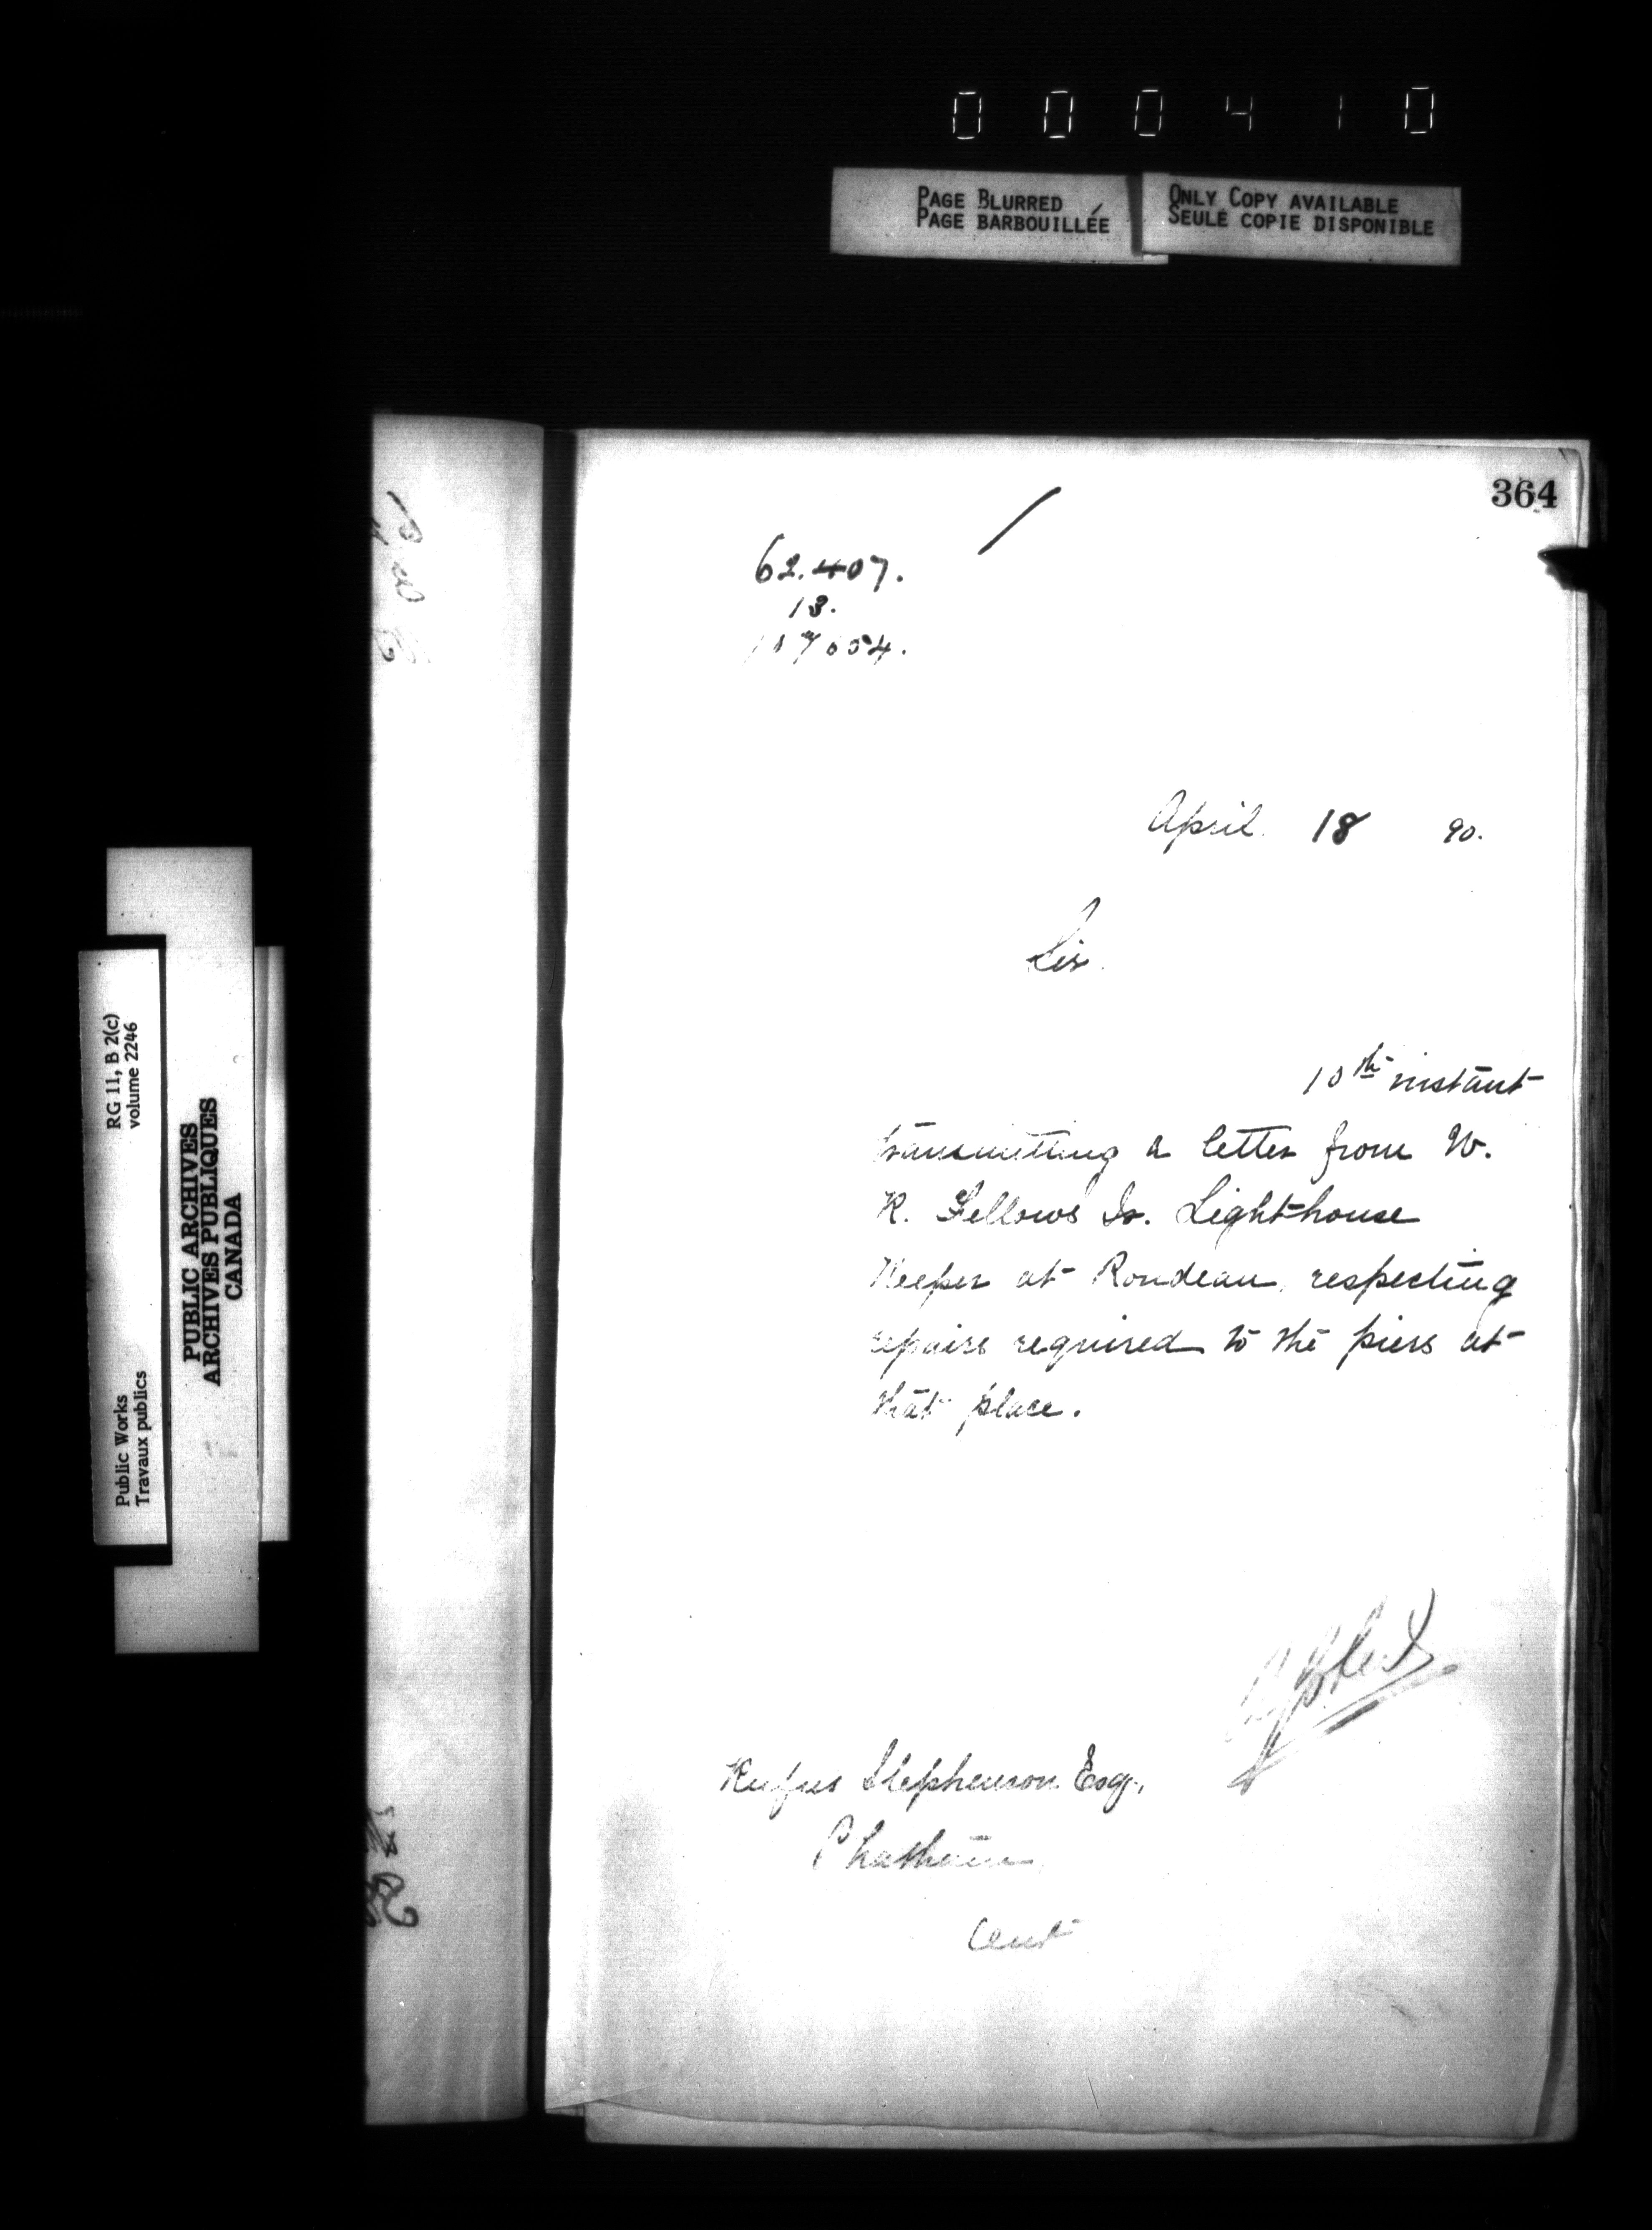 000410
PAGE BLURRED
PAGE BARBOUILLÉE
ONLY COPY AVAILABLE
SEULE COPIE DISPONIBLE
364
62.407.
13.
107054.
April 18 90.
Sir
10th instant
transmitting a letter from W.
R. Fellows Jr. Light-house
Keeper at Rondeau, respecting
repairs required to the piers at
that place.
Rufus Stephenson Esq.,
Chatham
Ont
RG 11, B 2(c)
volume 2246
Public Works
Travaux publics
PUBLIC ARCHIVES
ARCHIVES PUBLIQUES
CANADA